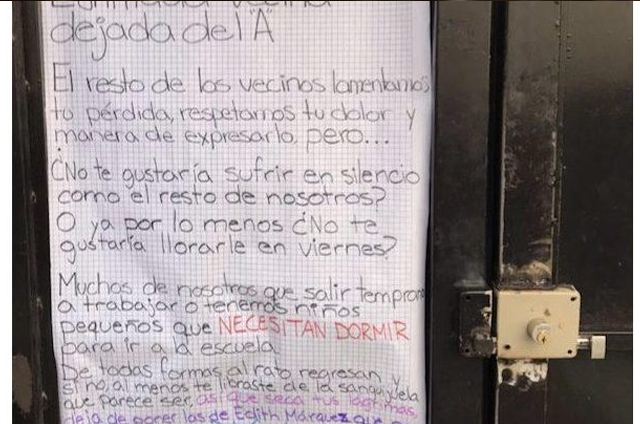 Estimada vecina
dejada del "A"
El resto de los vecinos lamentamos
tu pérdida, respetamos tu dolor y
manera de expresarlo, pero...
¿No te gustaría sufrir en silencio
como el resto de nosotros?
O ya por lo menos ¿No te
gustaría llorarle en viernes?
Muchos de nosotros que salir temprano
a trabajar o tenemos niños
pequeños que NECESITAN DORMIR
para ir a la escuela
De todas formas al rato regresan y
si no, al menos te libraste de la sanguijuela
que parece ser, así que seca tus lágrimas,
deja de poner las de Edith Márquez que